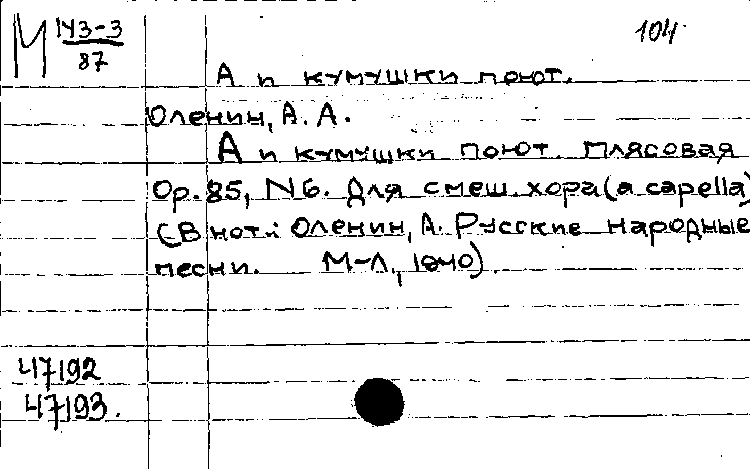 М 143-3
87
104
А и кумушки поют.
Оленин, А. А.
А и кумушки поют. Плясовая
Ор. 85, N6. Для смеш. хора (a capella)
(В нот.: Оленин, А. Русские народные
песни. М-Л., 1940).
47192
47193.